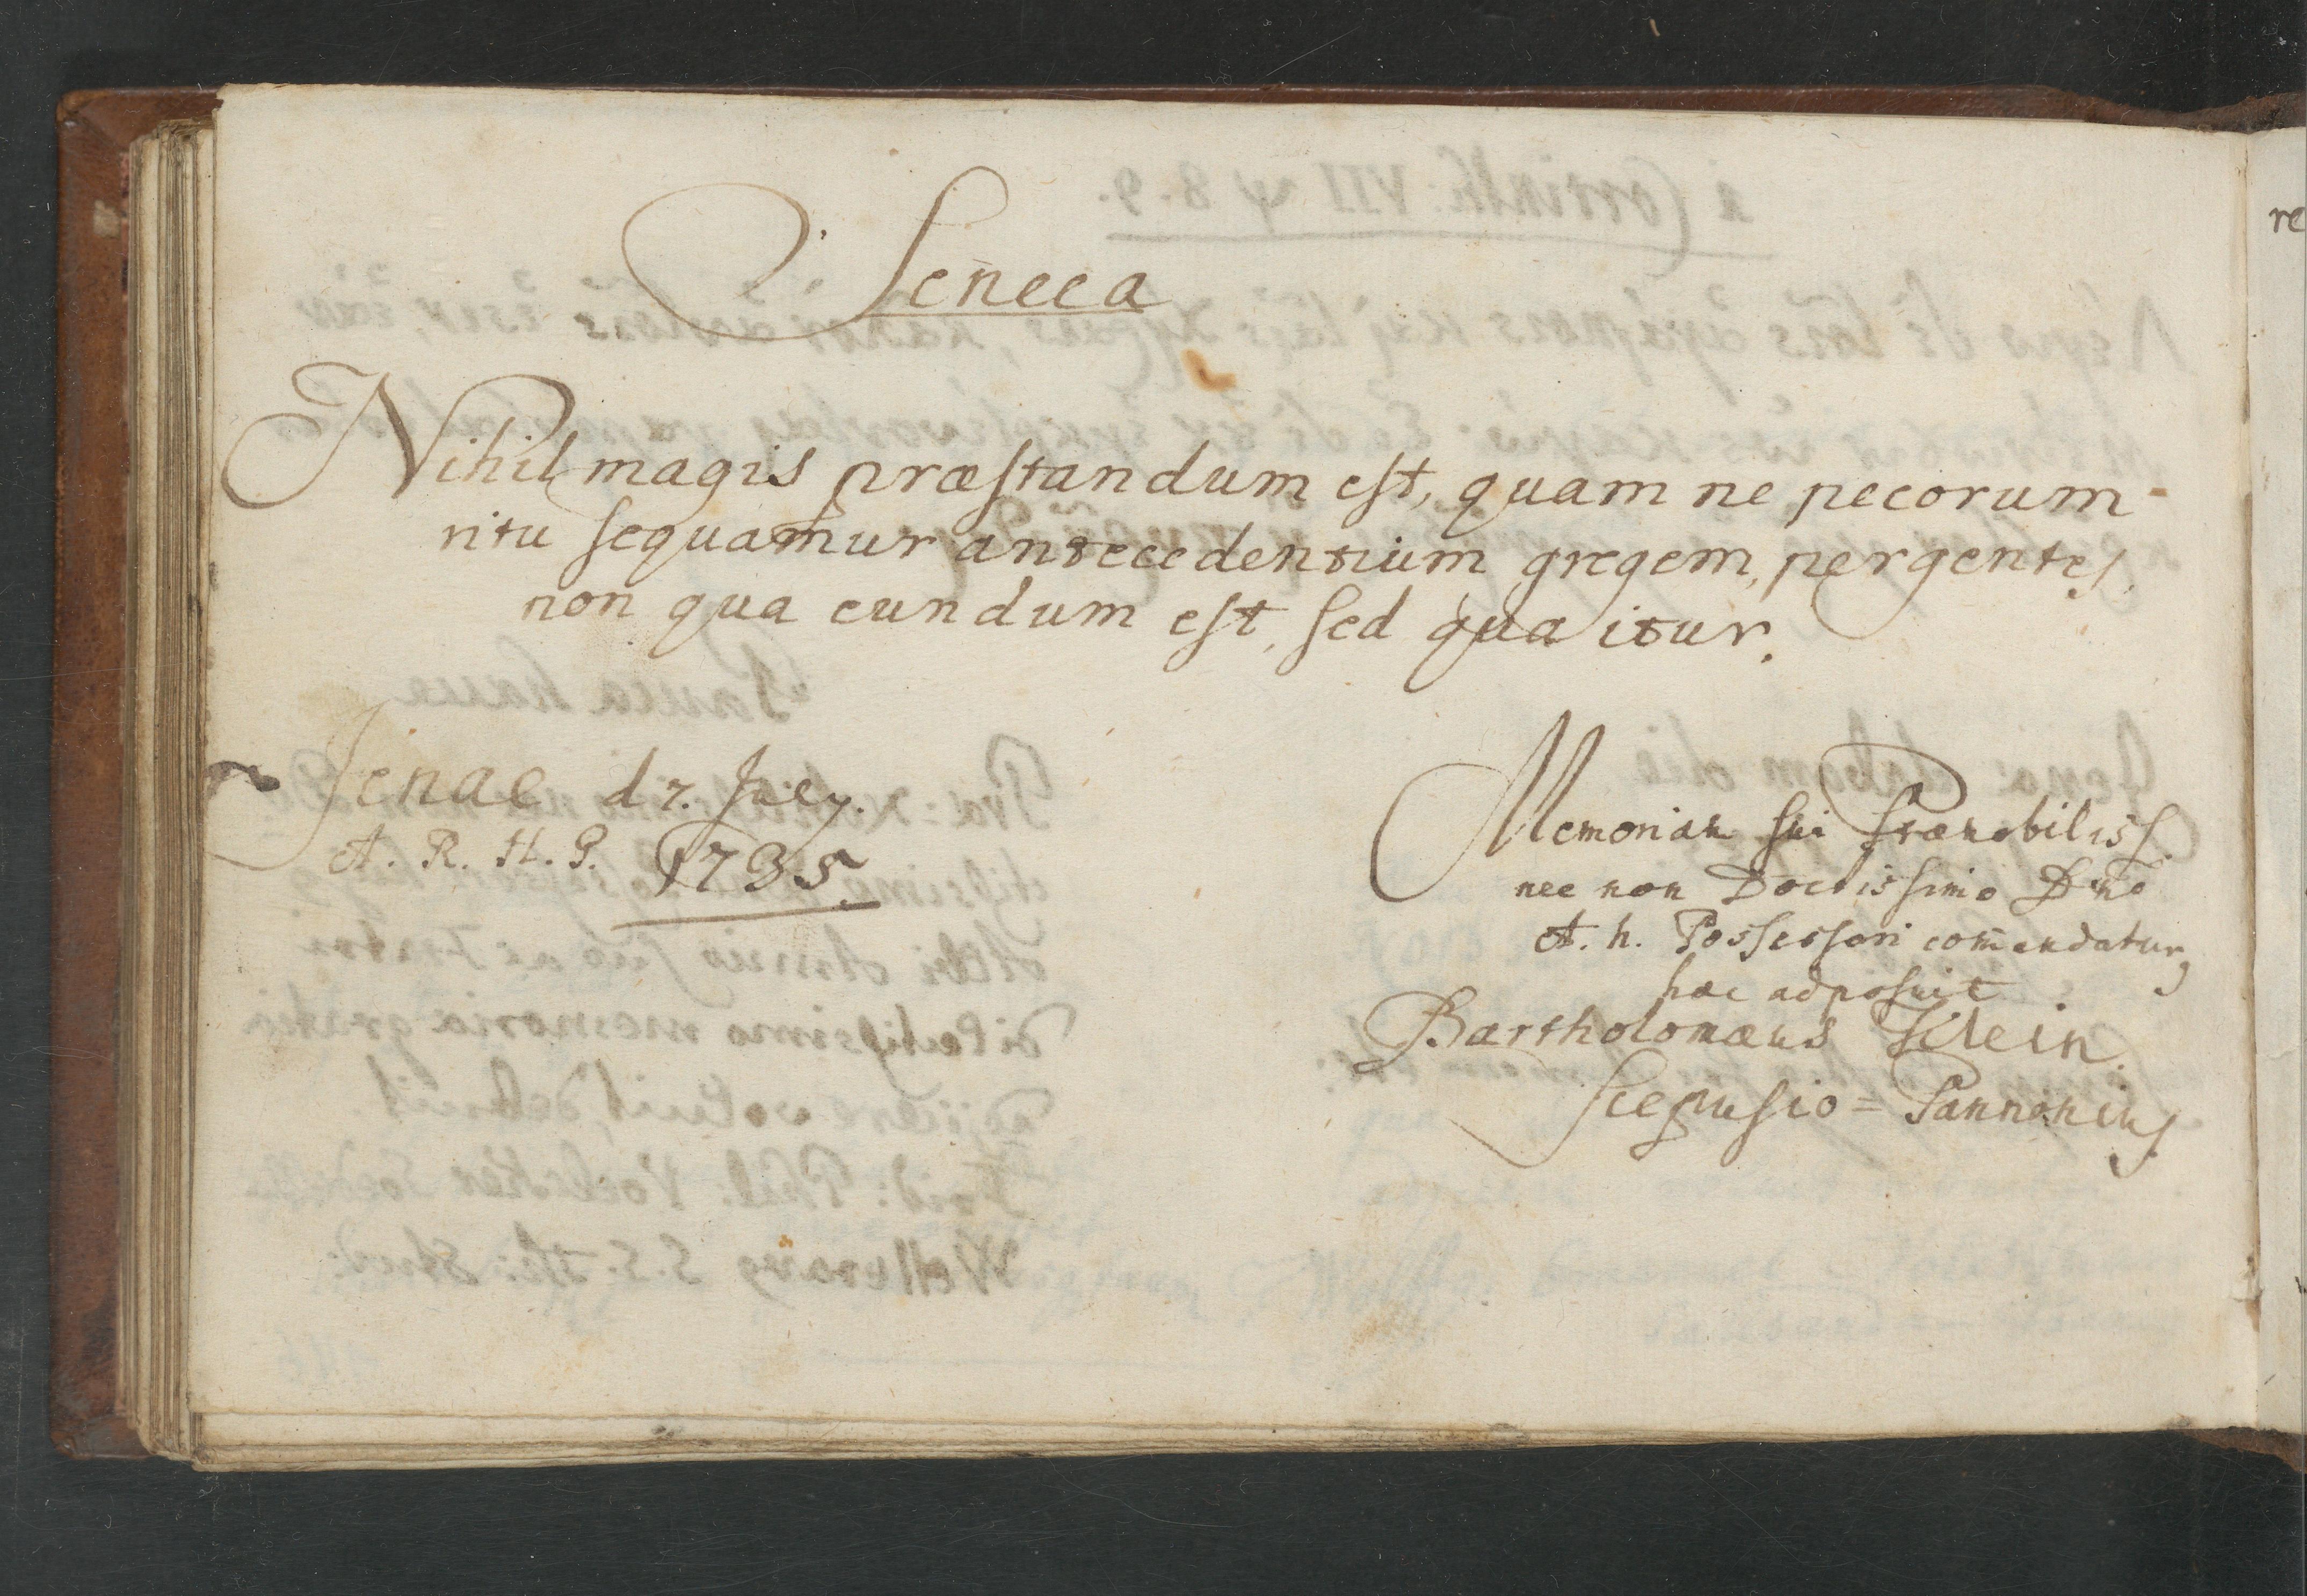 Seneca
Nihil magis præstandum est, quam ne pecorum
ritu sequamur antecedentium gregem, pergentes,
non qua eundum est, sed qua itur.
Jenae d 7. July.
A. R. H. G. 1735.
Memoriam sui Prænobiliss.
nec non Doctissimo Dnō
A. h. Possessori com̄endatur,
hæc adposuit
Bartholomæus Klein.
Scepusio = Pannonius.
re